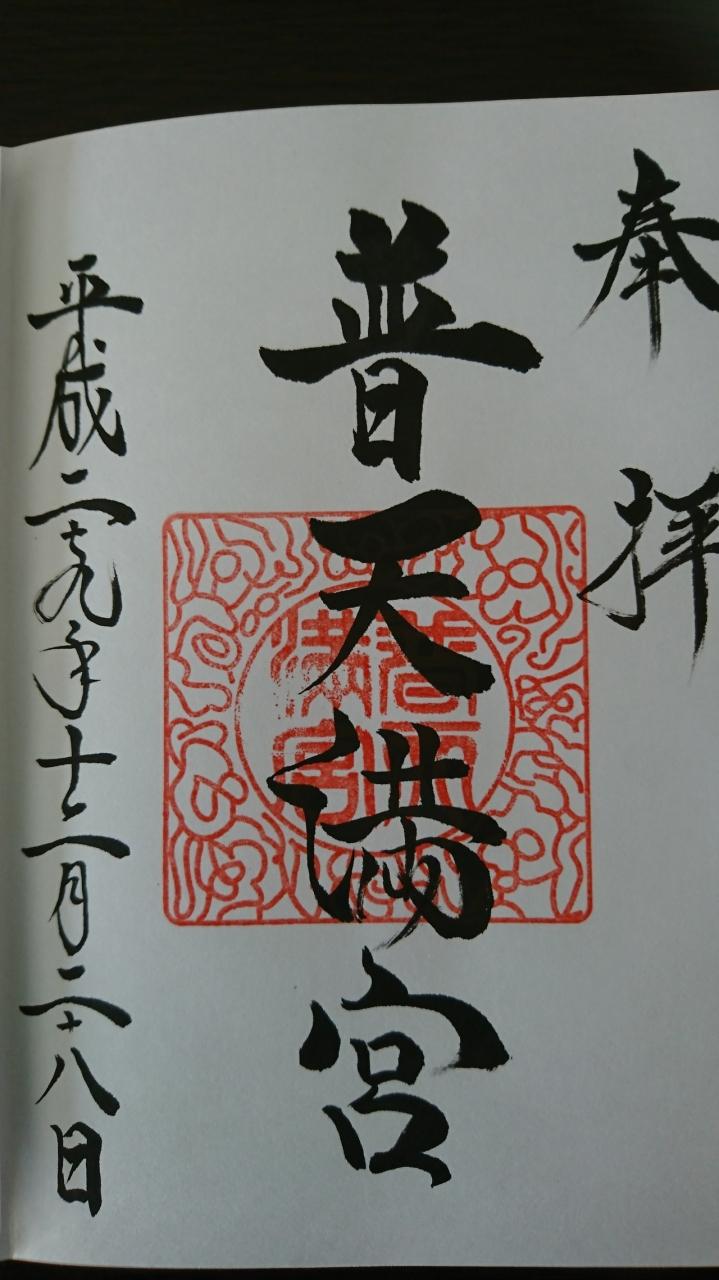 奉拝
普天満宮
普天
満宮
平成二十九年十二月二十八日